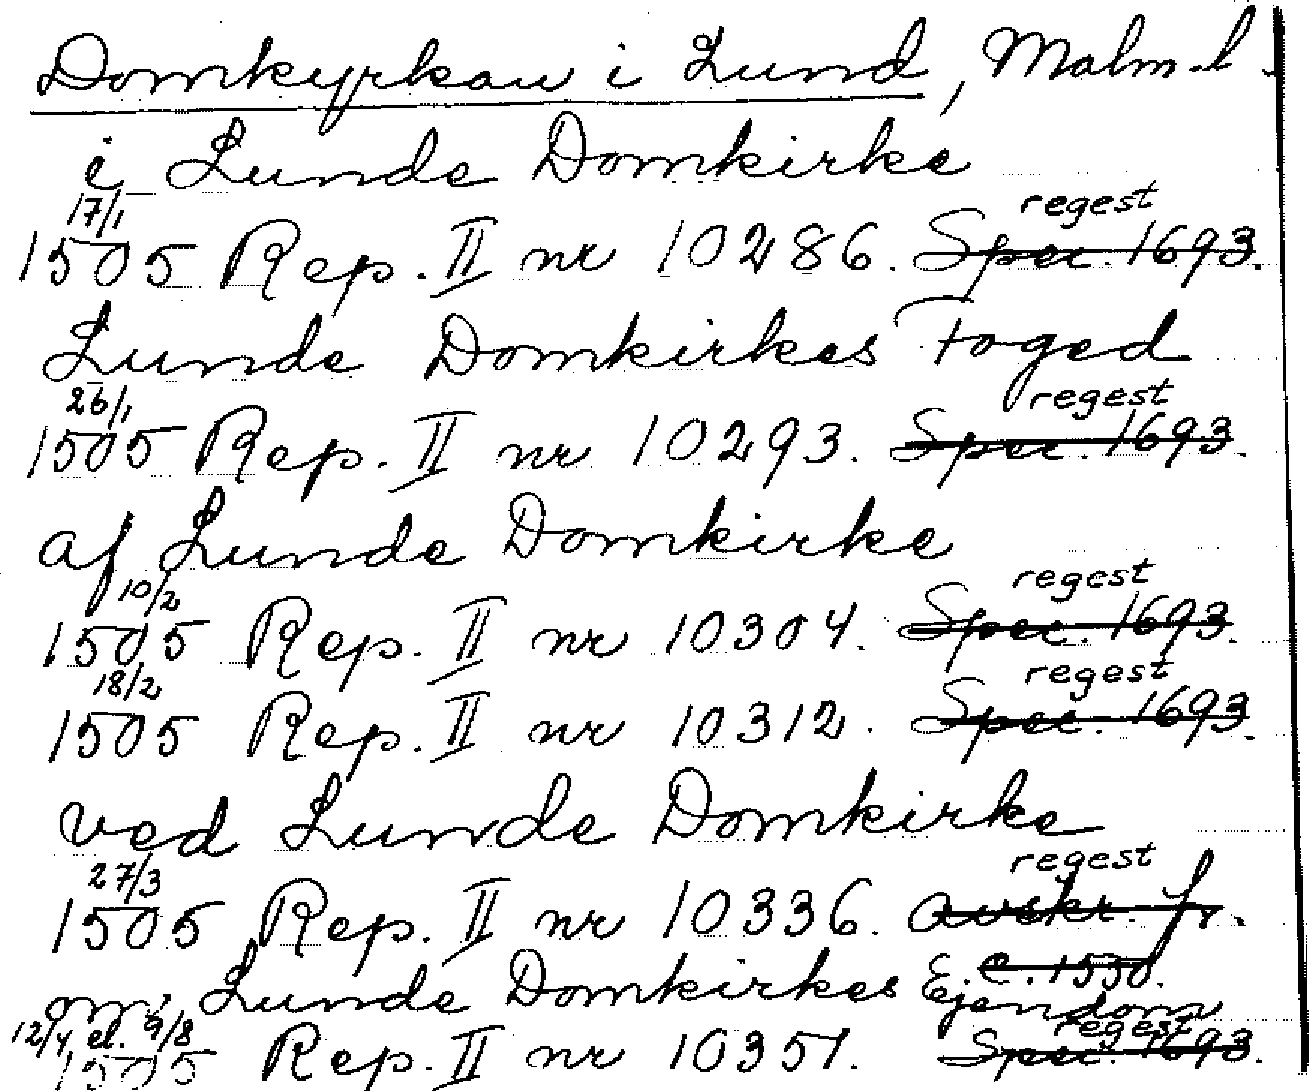 Domkyrkan i Lund, Malm.l.
i Lunde Domkirke
17/1 regest
1505 Rep. II nr 10286. Spec. 1693.
Lunde Domkirkes Foged
26/1 regest
1505 Rep. II nr 10293. Spec. 1693.
af Lunde Domkirke
10/2 regest
1505 Rep. II nr 10304. Spec. 1693.
18/2 regest
1505 Rep. II nr 10312. Spec. 1693.
ved Lunde Domkirke
27/3 regest
1505 Rep. II nr 10336. avskr. fr.
c. 1550.
om Lunde Domkirkes Ejendom
12/4 el. 9/8 regest
1505 Rep. II nr 10351. Spec. 1693.